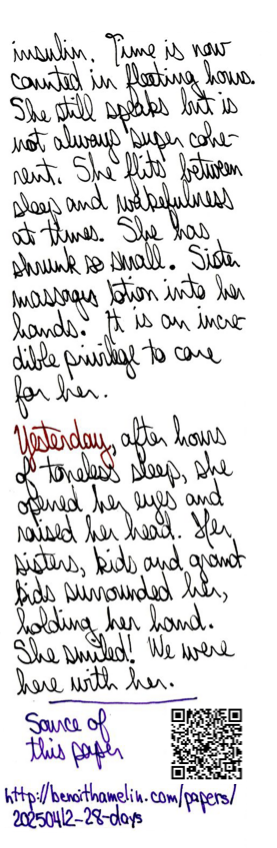 insulin. Time is now
counted in fleeting hours.
She still speaks but is
not always super cohe-
rent. She flits between
sleep and wakefulness
at times. She has
shrunk so small. Sister
massages lotion into her
hands. It is an incre-
dible privilege to care
for her.
Yesterday, after hours
of toneless sleep, she
opened her eyes and
raised her head. Her
sisters, kids and grand
kids surrounded her,
holding her hand.
She smiled! We were
here with her.
Source of
this paper
http://benoithamelin.com/papers/
20250412-28-days